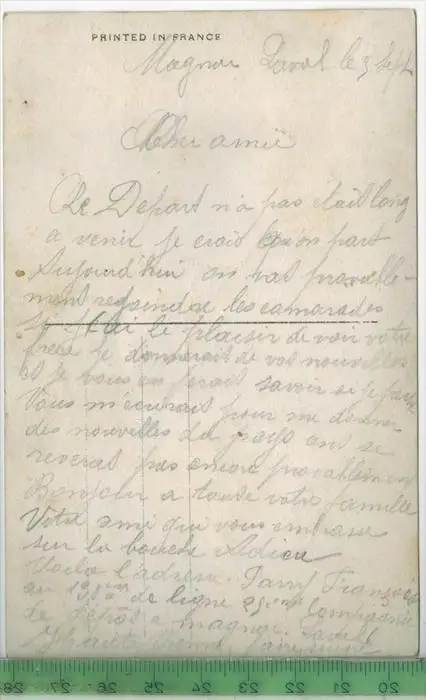 PRINTED IN FRANCE
Magnac Laval le 3 Sept
Cher amie
Le Départ n'a pas était long
a venir je crois quon part
Aujourd'hui on vat provable-
ment rejoindre les camarades
si j'ai le plaisir de voir votre
frère je donnerait de vos nouvelles
et je vous en ferait savoir si je
Vous m'écrirait pour me donner
des nouvelles du pays ons se
reverat pas encore provablemen
Bonjour a toute votre famille
Votre ami qui vous embrasse
sur la bouche Adieu
Voila l'adresse. François
au de ligne Compagnie
le dépôt a magnac Laval
Haute Vienne
28 27 26 25 24 23 22 21 20